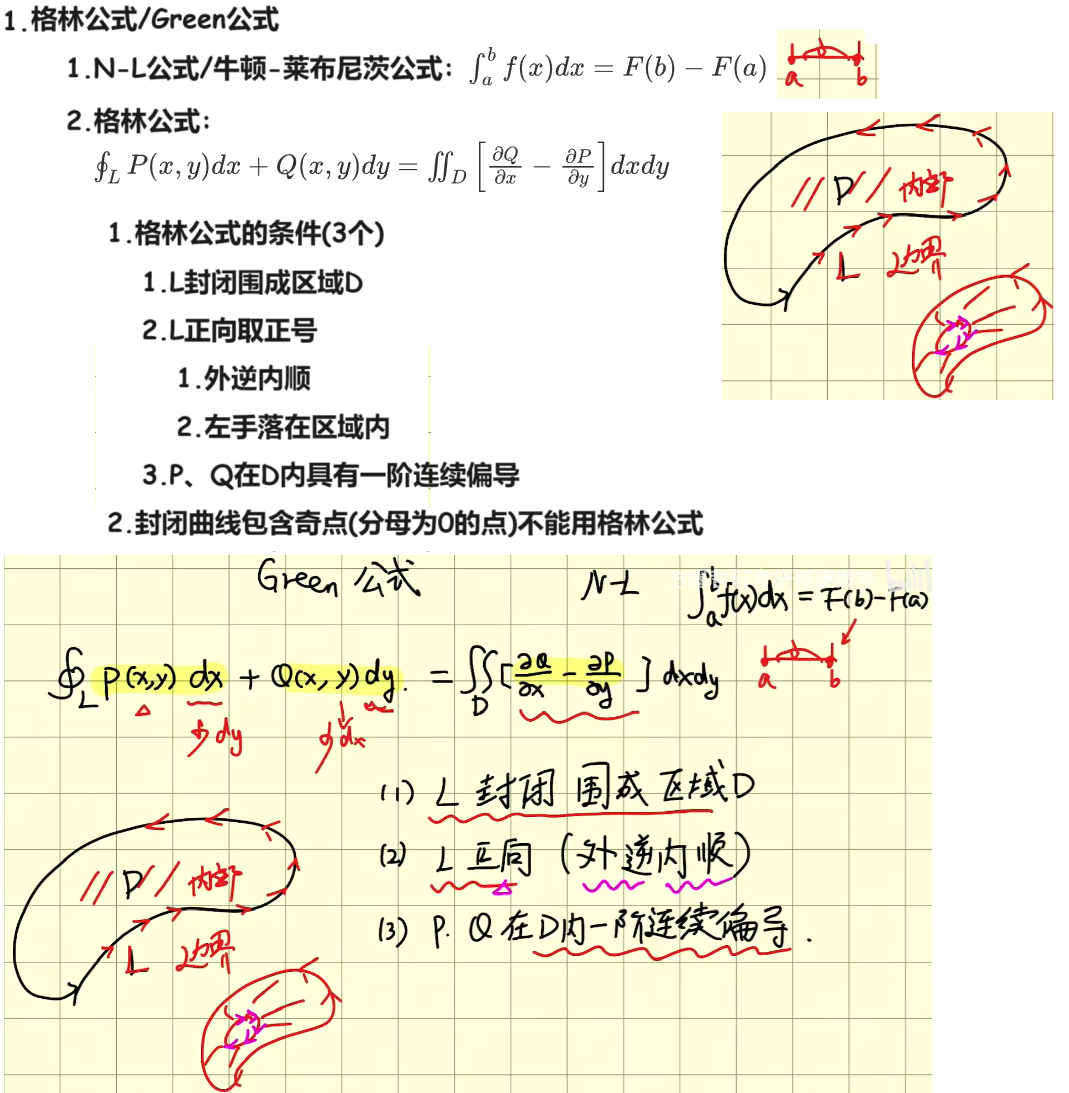 1.格林公式/Green公式
1.N-L公式/牛顿-莱布尼茨公式：∫_a^b f(x)dx = F(b) − F(a)
a b
2.格林公式：
∮_L P(x,y)dx + Q(x,y)dy = ∬_D [∂Q/∂x − ∂P/∂y] dxdy
D 内部
L 边界
1.格林公式的条件(3个)
1.L封闭围成区域D
2.L正向取正号
1.外逆内顺
2.左手落在区域内
3.P、Q在D内具有一阶连续偏导
2.封闭曲线包含奇点(分母为0的点)不能用格林公式
Green 公式 N-L ∫_a^b f(x)dx = F(b)-F(a)
∮_L P(x,y) dx + Q(x,y)dy. = ∬_D [∂Q/∂x - ∂P/∂y] dxdy
a b
dy dx
(1) L 封闭 围成 区域D
(2) L 正向 (外逆内顺)
(3) P. Q 在D内一阶连续偏导.
D 内部
L 边界